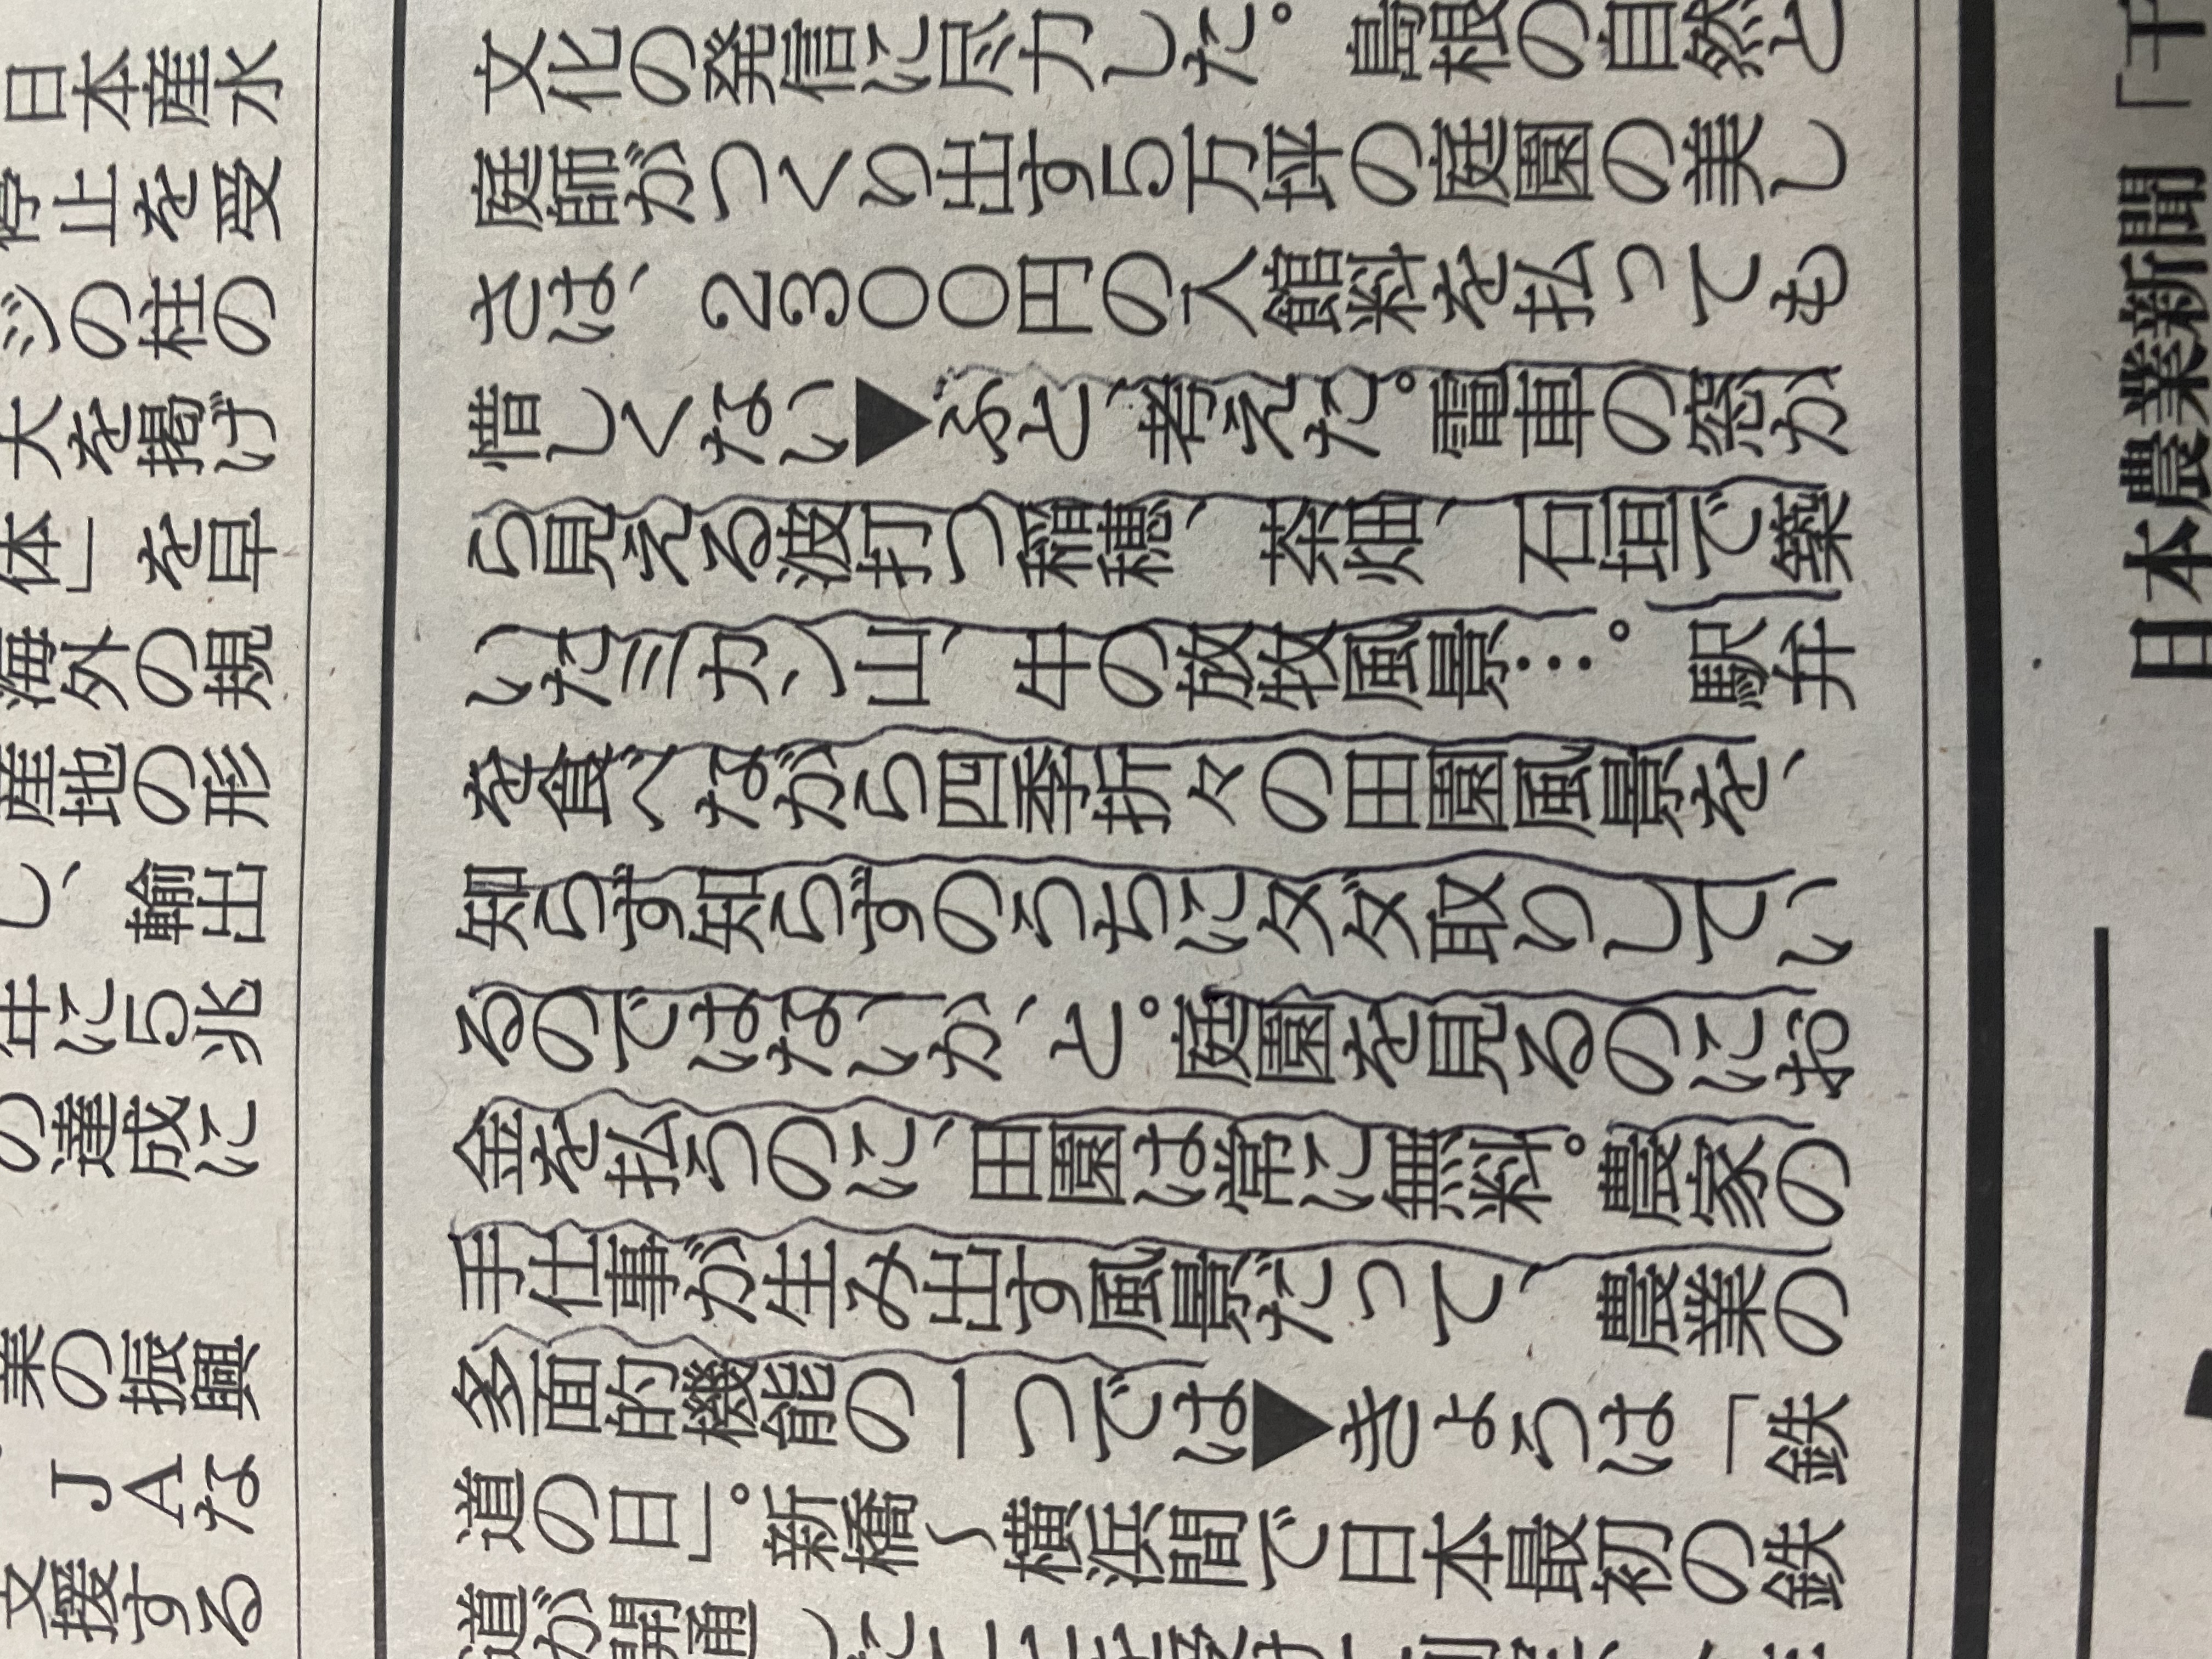 文化の発信に尽力した。島根の自然と
庭師がつくり出す5万坪の庭園の美し
さは、2300円の入館料を払っても
惜しくない▼ふと、考えた。電車の窓か
ら見える波打つ稲穂、茶畑、石垣で築
いたミカン山、牛の放牧風景…。駅弁
を食べながら四季折々の田園風景を、
知らず知らずのうちにタダ取りしてい
るのではないか、と。庭園を見るのにお
金を払うのに、田園は常に無料。農家の
手仕事が生み出す風景だって、農業の
多面的機能の一つでは▼きょうは「鉄
道の日」。新橋〜横浜間で日本最初の鉄
道が開通し
日本産水
停止を受
ジの柱の
大を掲げ
体」を早
海外の規
産地の形
し、輸出
年に5兆
の達成に
業の振興
JAな
支援する
日本農業新聞